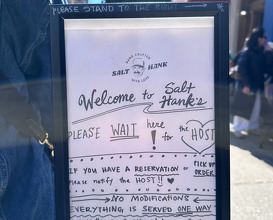 PLEASE STAND TO THE RIGHT
SALT HANK
Welcome to Salt
Hank's
PLEASE WAIT here
! for the HOST
IF YOU HAVE A RESERVATION or PICK UP
ORDER
Please notify the HOST!!
NO Modifications
EVERYTHING is SERVED ONE WAY